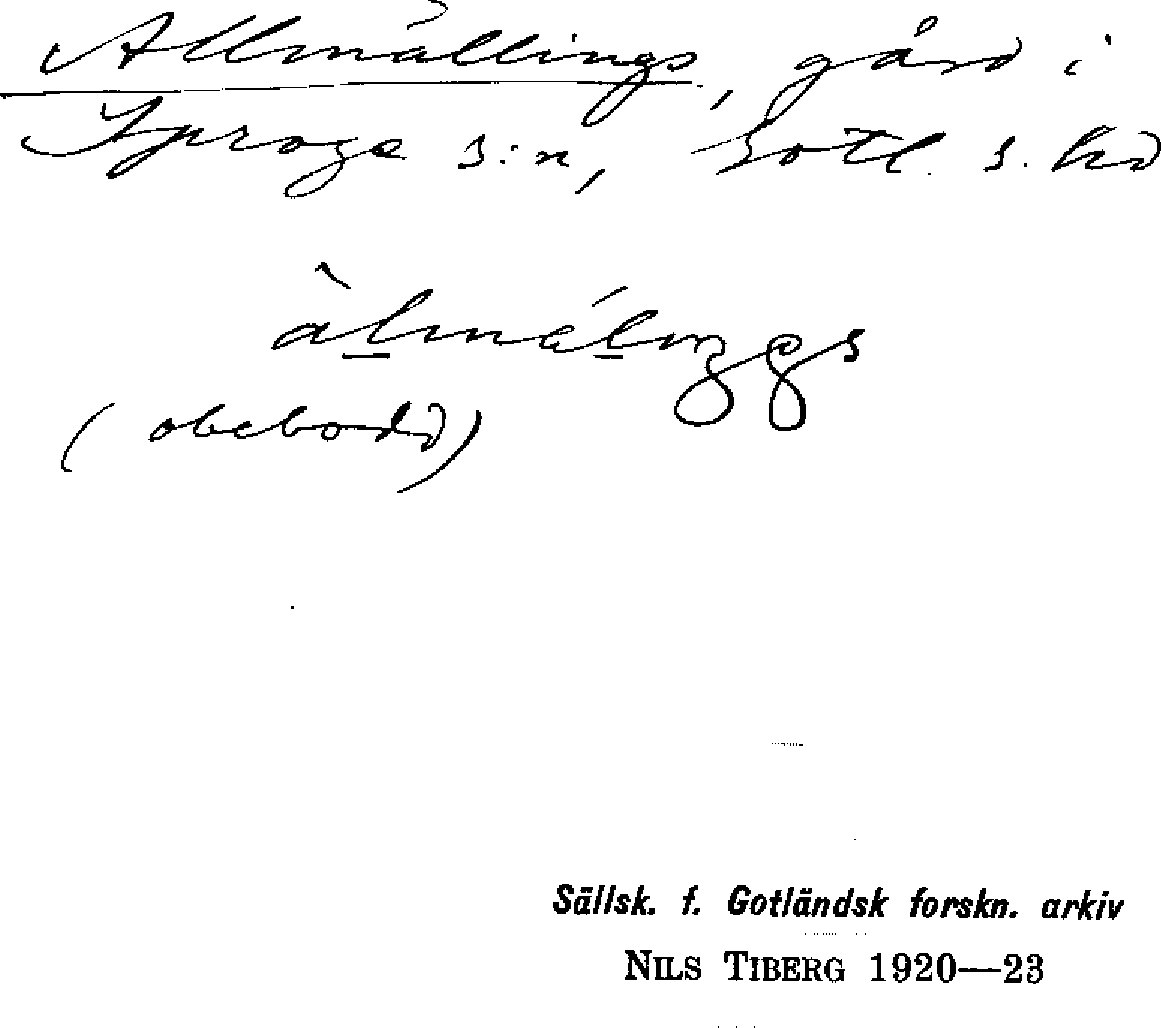 Allmällings, gård i
Sproge s:n, Gotl. s. hd
àlmálıŋgs
(obebodd)
Sällsk. f. Gotländsk forskn. arkiv
NILS TIBERG 1920—23